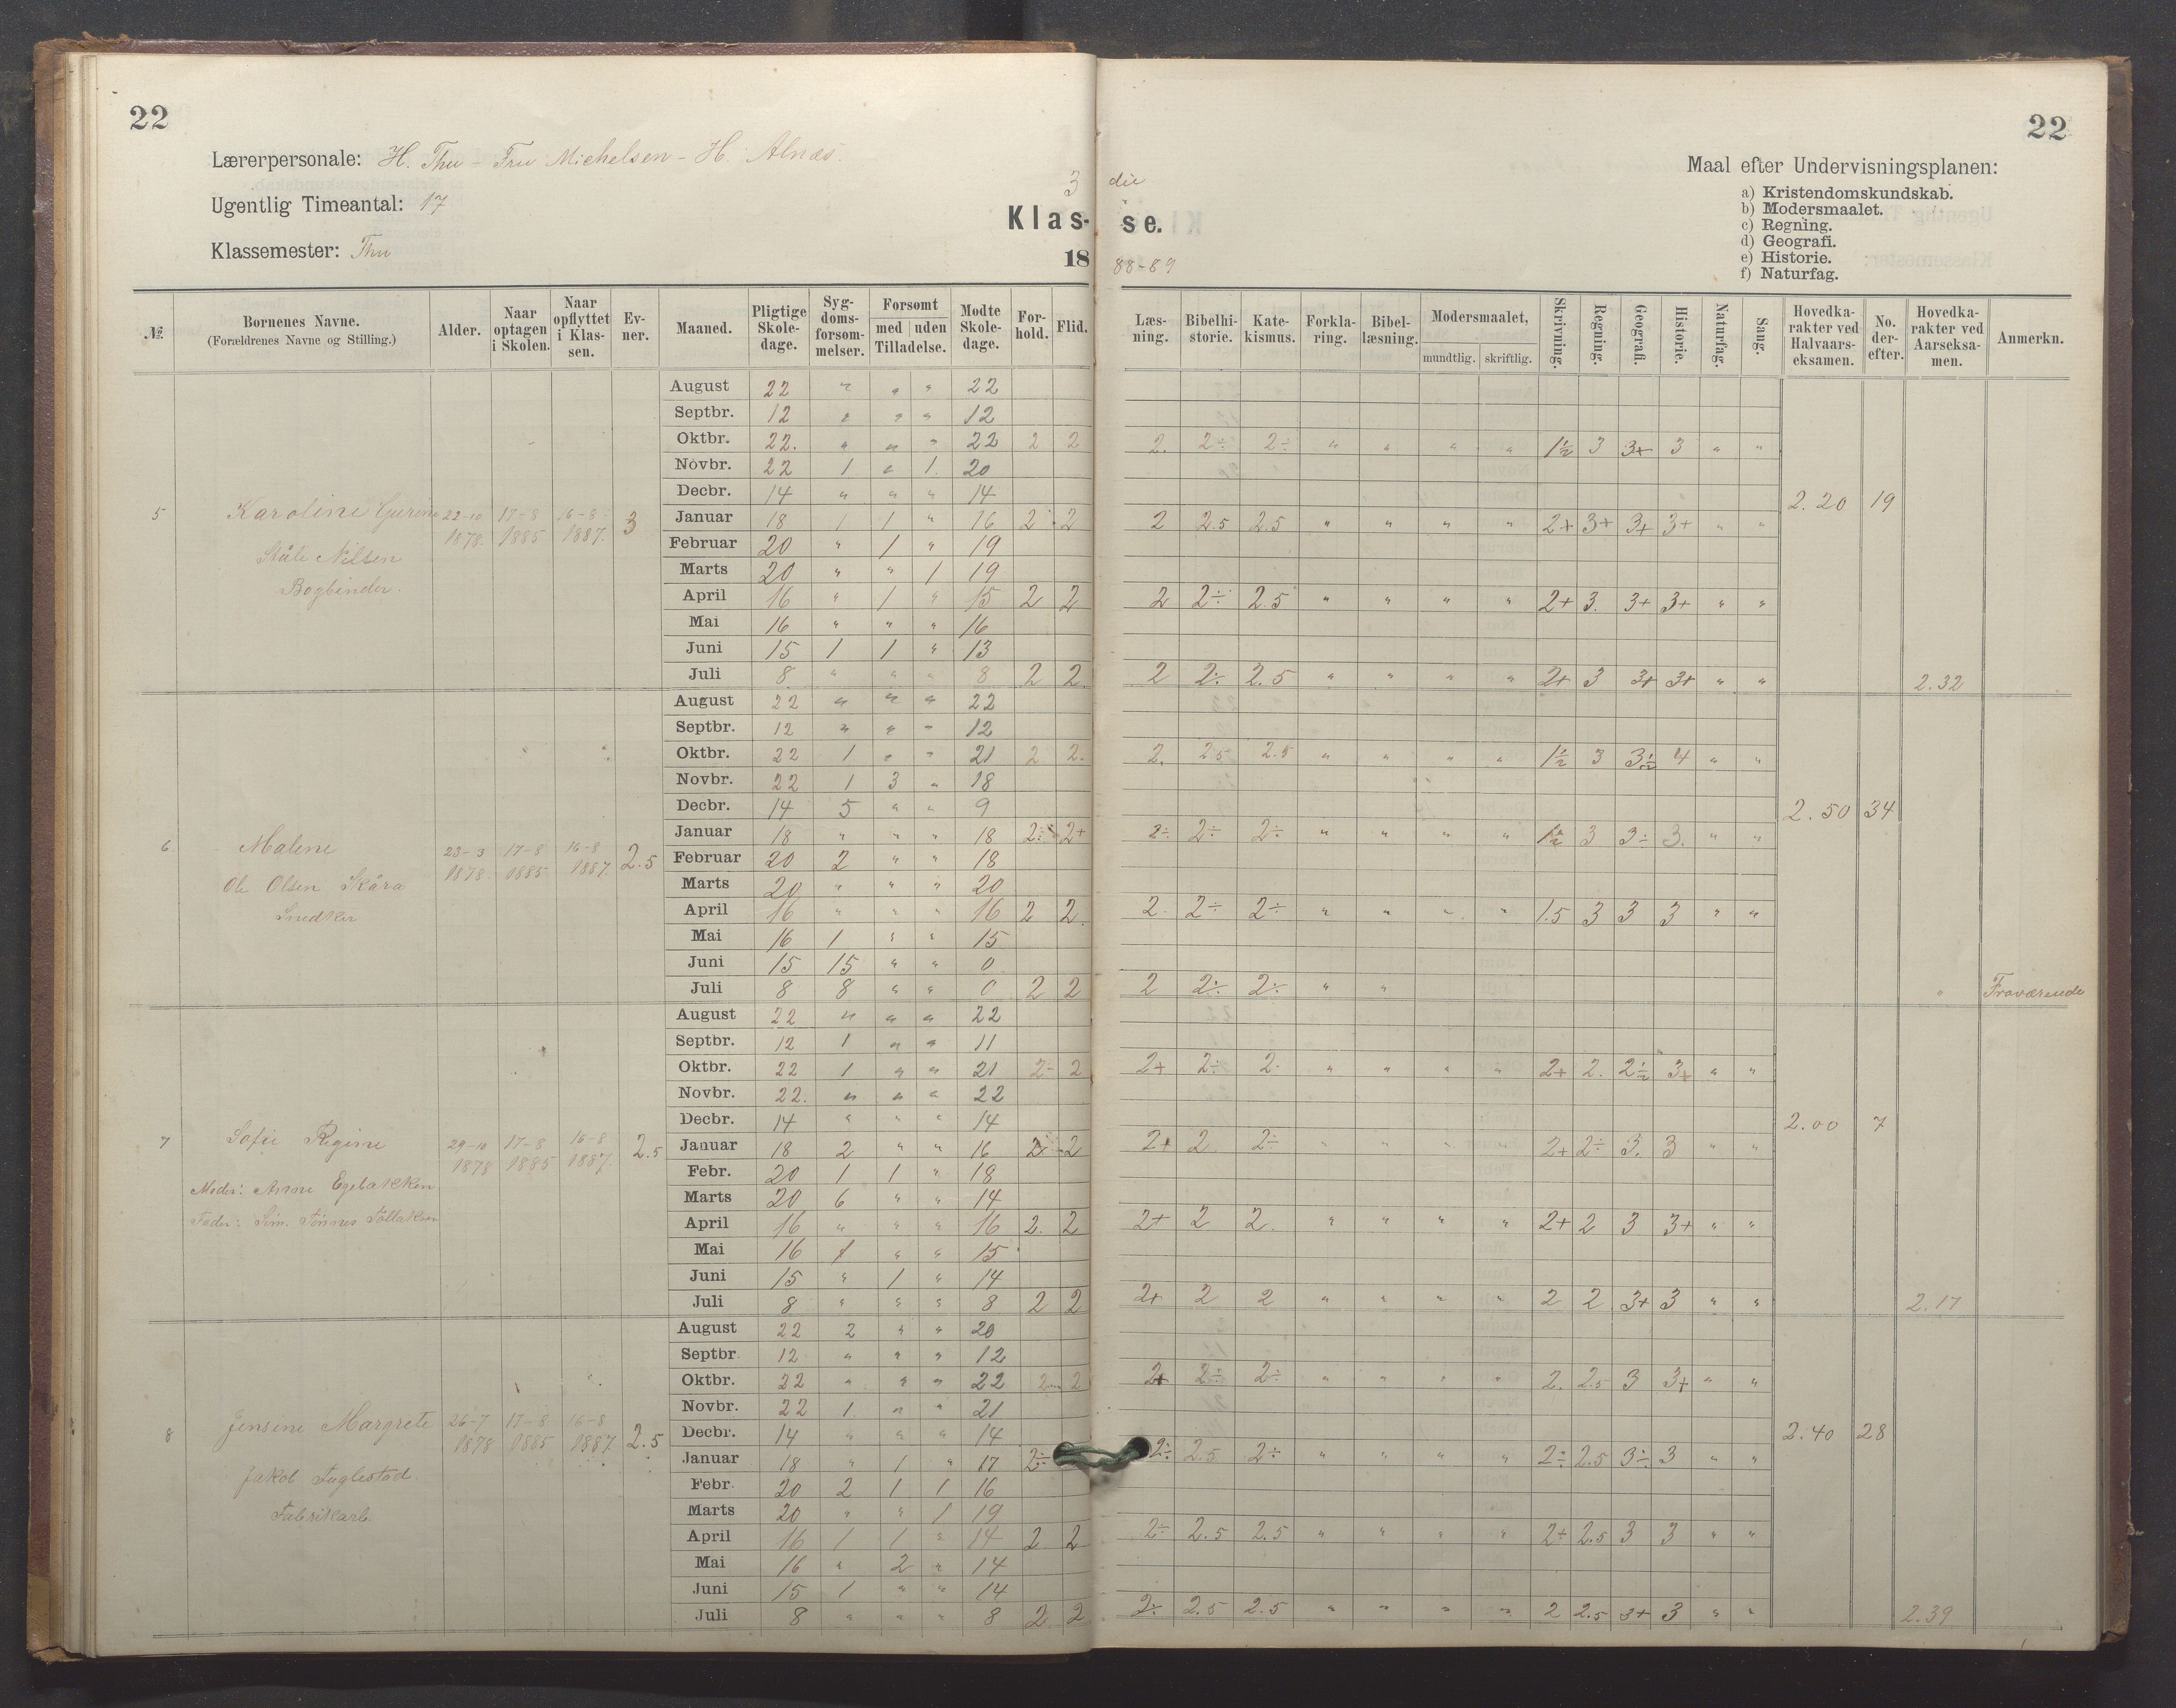 22
22
Lærerpersonale: H. Thu - Fru Michelsen - H. Alnæs.
Ugentlig Timeantal: 17
Klassemester: Thu
3 die
Klas- se.
18 88-89
Maal efter Undervisningsplanen:
a) Kristendomskundskab.
b) Modersmaalet.
c) Regning.
d) Geografi.
e) Historie.
f) Naturfag.
№ Børnenes Navne. (Forældrenes Navne og Stilling.) Alder. Naar optagen i Skolen. Naar opflyttet i Klassen. Evner. Maaned. Pligtige Skoledage. Sygdomsforsømmelser. Forsømt med uden Tilladelse. Mødte Skoledage. Forhold. Flid. Læsning. Bibelhistorie. Katekismus. Forklaring. Bibellæsning. Modersmaalet, mundtlig. skriftlig. Skrivning. Regning. Geografi. Historie. Naturfag. Sang. Hovedkarakter ved Halvaarseksamen. No. derefter. Hovedkarakter ved Aarseksamen. Anmerkn.
5 Karoline Gurine 22-10 1878. 17-8 1885 16-8 1887. 3 2.20 19
Ståle Nilsen
Bogbinder.
August 22 " " " 22
Septbr. 12 " " " 12
Oktbr. 22. " " " 22 2 2 2. 2÷ 2÷ " " " " 1½ 3 3+ 3 " "
Novbr. 22 1 " 1. 20
Decbr. 14 " " " 14
Januar 18 1 1 " 16 2 2 2 2.5 2.5 " " " " 2+ 3+ 3+ 3+ " "
Februar 20 " 1 " 19
Marts 20 " " 1 19
April 16 " 1 " 15 2 2 2 2÷ 2.5 " " " " 2+ 3. 3+ 3+ " "
Mai 16 " " " 16
Juni 15 1 1 " 13
Juli 8 " " " 8 2 2 2 2÷ 2.5 " " " " 2+ 3 3+ 3+ " " 2.32
6 Malene 23-3 1878. 17-8 1885 16-8 1887. 2.5 2.50 34
Ole Olsen Skåra
Snedker
August 22 " " " 22
Septbr. 12 " " " 12
Oktbr. 22 1 " " 21 2 2. 2. 2.5 2.5 " " " " 1½ 3 3½ 4 " "
Novbr. 22 1 3 " 18
Decbr. 14 5 " " 9
Januar 18 " " " 18 2÷ 2+ 2÷ 2÷ 2÷ " " " " 1½ 3 3÷ 3. " "
Februar 20 2 " " 18
Marts 20 " " " 20
April 16 " " " 16 2 2. 2. 2÷ 2÷ " " " " 1.5 3 3 3 " "
Mai 16 1 " " 15
Juni 15 15 " " 0
Juli 8 8 " " 0 2 2 2 2÷ 2÷ " " " Fraværende
7 Sofie Regine 29-10 1878 17-8 1885 16-8 1887. 2.5 2.00 7
Moder: Anne Egebakken
Fader: Sim. Tønnes Tollaksen
August 22 " " " 22
Septbr. 12 1 " " 11
Oktbr. 22 1 " " 21 2- 2 2+ 2÷ 2. " " " " 2+ 2. 2½ 3+ " "
Novbr. 22. " " " 22
Decbr. 14 " " " 14
Januar 18 2 " " 16 2 2 2+ 2 2÷ " " " " 2+ 2÷ 3. 3 " "
Febr. 20 1 1 " 18
Marts 20 6 " " 14
April 16 " " " 16 2. 2 2+ 2 2. " " " " 2+ 2 3 3+ " "
Mai 16 1 " " 15
Juni 15 " 1 " 14
Juli 8 " " " 8 2 2 2+ 2 2 " " " " 2 2 3+ 3 " " 2.17
8 Jensine Margrete 26-7 1878 17-8 1885 16-8 1887 2.5 2.40 28
Jakob Fuglestad
Fabrikarb.
August 22 2 " " 20
Septbr 12 " " " 12
Oktbr. 22 " " " 22 2 2 2+ 2÷ 2÷ " " " " 2. 2.5 3 3+ " "
Novbr. 22 1 " " 21
Decbr. 14 " " " 14
Januar 18 " 1 " 17 2÷ 2÷ 2.5 2÷ " " " " 2÷ 2.5 3÷ 3 " "
Febr. 20 2 1 1 16
Marts 20 " " 1 19
April 16 1 1 " 14 2 2 2÷ 2.5 2.5 " " " " 2÷ 2.5 3 3 " "
Mai 16 " 2 " 14
Juni 15 1 " " 14
Juli 8 " " " 8 2 2 2÷ 2.5 2.5 " " " " 2 2.5 3+ 3 " " 2.39